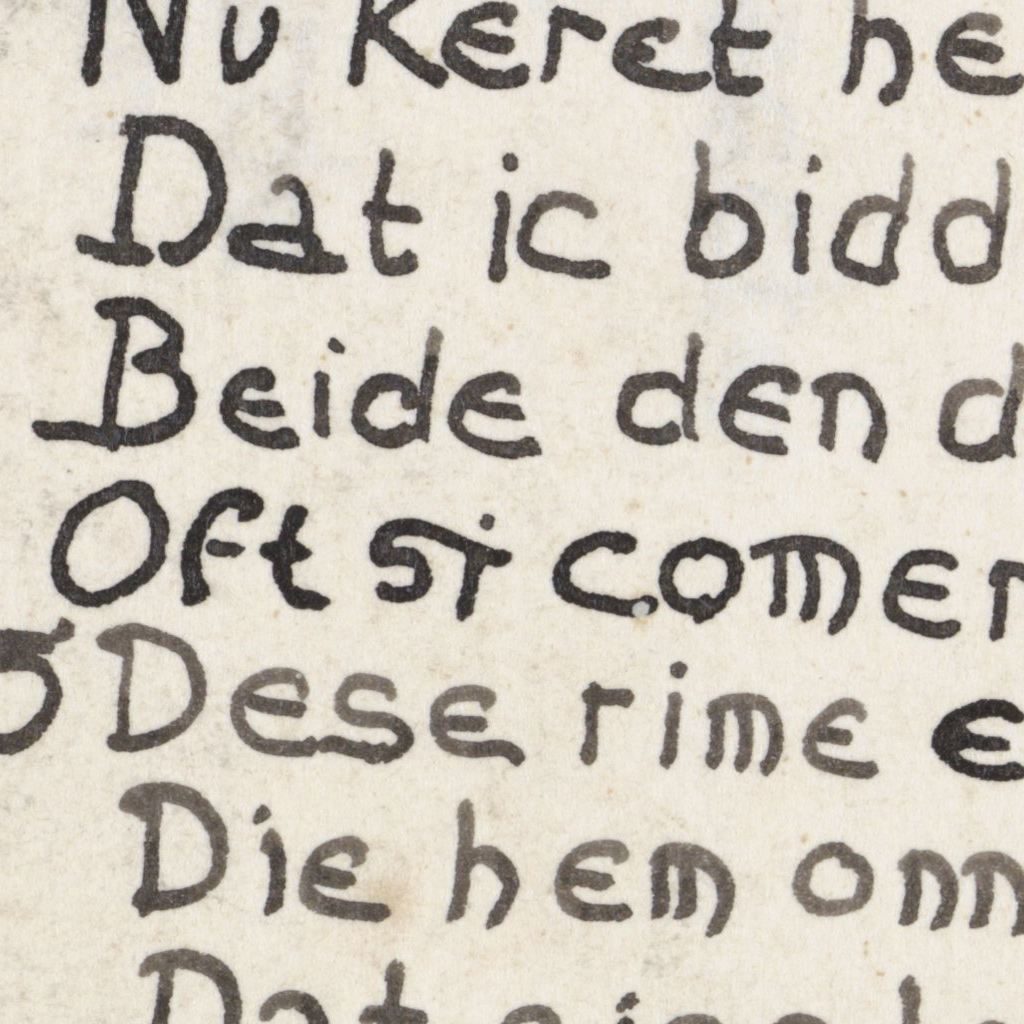 Nu keret he
Dat ic bidd
Beide den d
Oft si comen
5 Dese rime e
Die hem onn
Dat